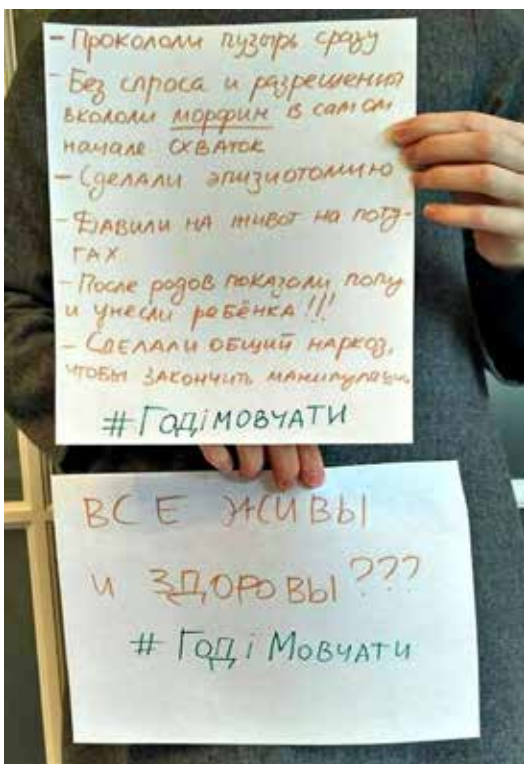 - Прокололи пузырь сразу
- Без спроса и разрешения
вкололи морфин в самом
начале схваток
- Сделали эпизиотомию
- Давили на живот на поту-
гах
- После родов показали попу
и унесли ребёнка!!!
- Сделали общий наркоз,
чтобы закончить манипуляции
#Годімовчати
ВСЕ ЖИВЫ
И ЗДОРОВЫ???
#ГодіМовчати